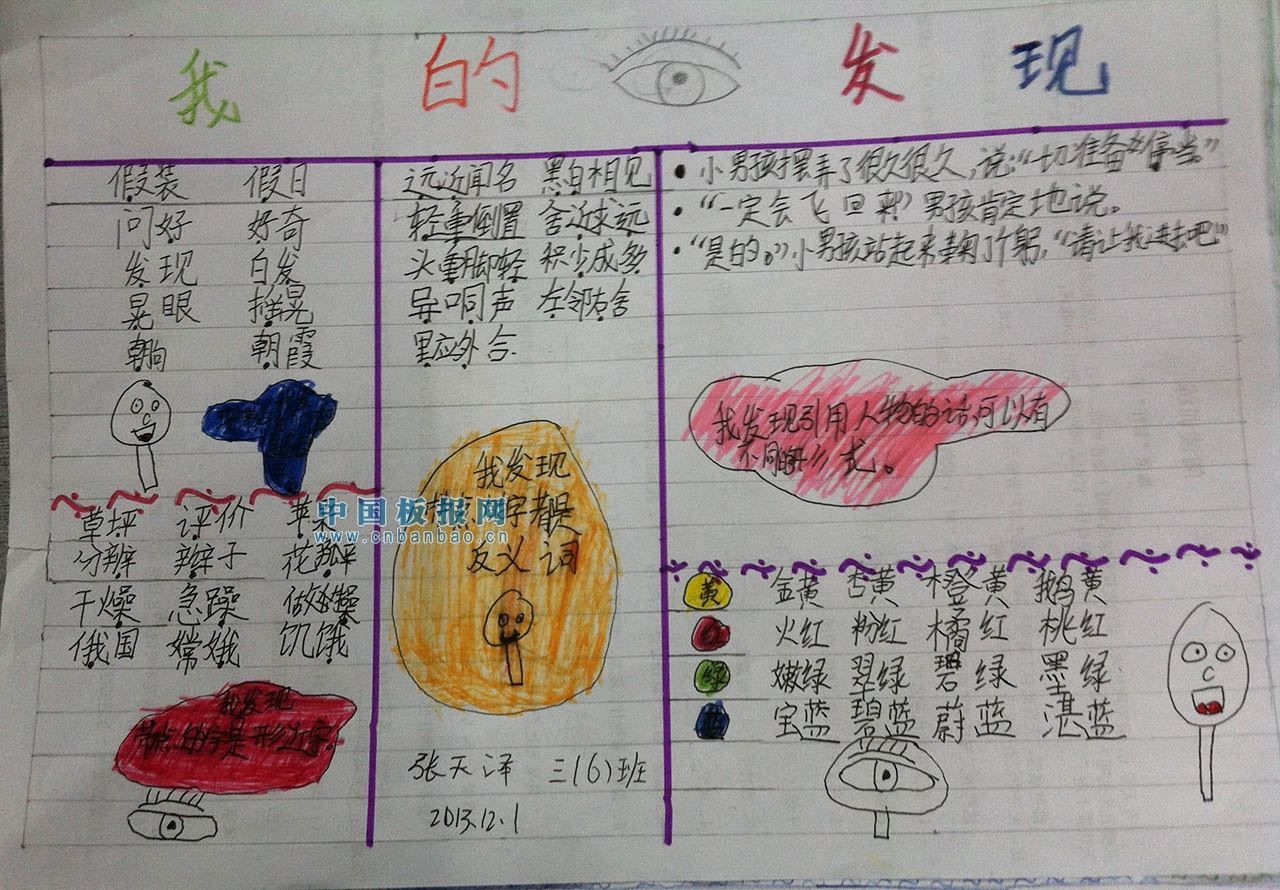 我的发现
假装 假日
问好 好奇
发现 白发
晃眼 摇晃
朝向 朝霞
草坪 评价 苹果
分辨 辫子 花瓣
干燥 急躁 做操
俄国 嫦娥 饥饿
我发现
带点的字是形近字。
远近闻名 黑白相见
轻重倒置 舍近求远
头重脚轻 积少成多
异口同声 左邻右舍
里应外合
我发现
带点的字都是
反义词
张天泽 三(6)班
2013.12.1
小男孩摆弄了很久很久,说:“一切准备停当。”
“一定会飞回来”男孩肯定地说。
“是的。”小男孩站起来鞠了个躬,“请让我进去吧”
我发现引用人物的话,可以有
不同的形式。
黄 金黄 杏黄 橙黄 鹅黄
红 火红 粉红 橘红 桃红
绿 嫩绿 翠绿 碧绿 墨绿
蓝 宝蓝 碧蓝 蔚蓝 湛蓝
中国板报网
www.cnbanbao.cn